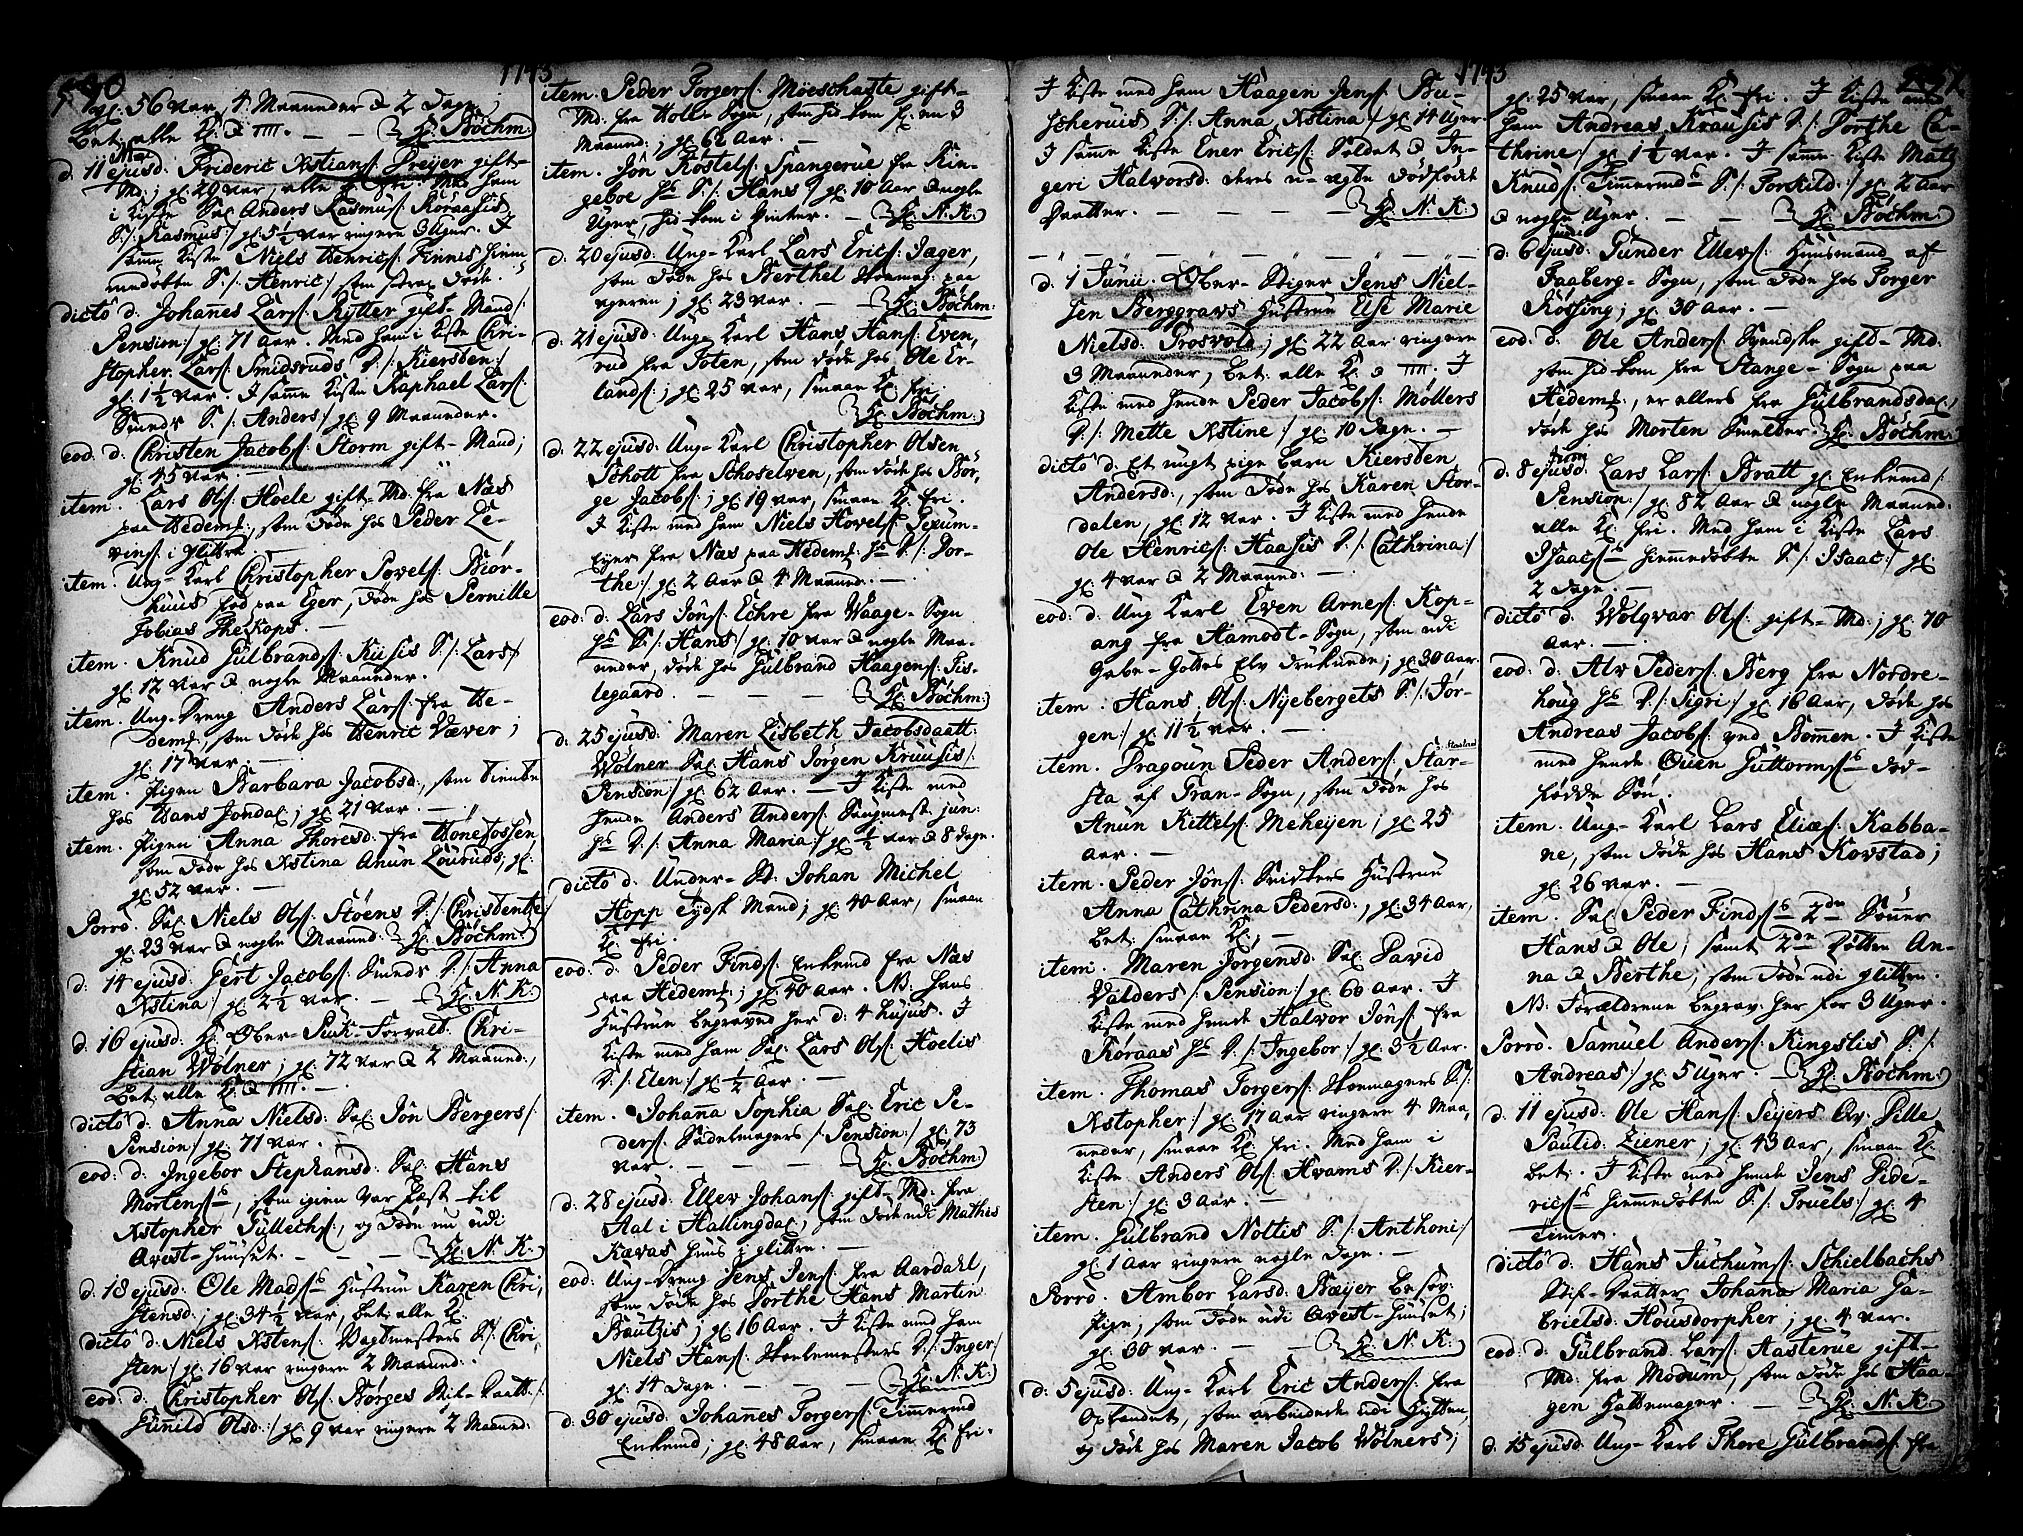 1743
gl: 56 Aar, 4 Maaneder & 2 Dage;
bet: alle Kl: & IIII. — — Hr: Bøchm:
d. 11 ejusd: Frideric Xstians: Dreijer gift-
Md: gl: 29 Aar, alle Kl: fri. Med ham
i Kiste Sal: Anders Rasmus: Røraasis
S: /: Rasmus :/ gl: 5½ Aar ringere 3 Uger. I
samme Kiste Niels Henrics: Finnis hiem
medøbte S: /: Henric :/ som strax døde.
dicto d: Johannes Lars: Rytter gift-Mand /
Pension :/ gl: 71 Aar. Med ham i Kiste Chri-
stopher Lars: Smidsruds D: /: Kiersten :/
gl: 1½ Aar. I samme Kiste Raphael Lars:
Smeds S: /: Anders :/ gl: 9 Maaneder.
eod: d: Christen Jacobs: Storm gift-Mand;
gl: 45 Aar. —
item. Lars Ols: Hoele gift-Md: fra Næs
paa Hedem:, som døde hos Peder Le-
vins: i Glittre —
item. Ung-Karl Christopher Povels: Biør-
huus fød paa Eger, døde hos Pernille
Tobias Thekops. —
item. Knud Gulbrands: Kusis S: /: Lars /
gl: 12 Aar & nogle Maaneder.
item. Ung-Dreng Anders Lars: fra He-
dem:, som døde hos Henric Væver;
gl: 17 Aar —
item. Pigen Barbara Jacobsd:, som tiente
hos Hans Jondal; gl: 21 Aar. —
item. Pigen Anna Thoresd: fra Hønefossen,
som døde hos Xstina Anun Louruds, gl:
gl: 52 Aar. —
Porro. Sal: Niels Ols: Støens D: /: Christentze /
gl: 23 Aar & nogle Maaned: Hr: Bøchm:
d: 14 ejusd: Gert Jacobs: Smeds D: /: Anna
Xstina :/ gl: 2½ Aar. — Hr: N: K:
d: 16 ejusd: Hr: Ober-Stik-Forvalt: Chri-
stian Wølner; gl: 72 Aar & 2 Maaned:,
bet: alle Kl: & IIII. —
dicto d: Anna Nielsd: Sal: Jôn Bergers /
Pension :/ gl: 71 Aar. —
eod: d: Ingebor Stephansd: Sal: Hans
Mortens:, som igien var fæst til
Xstopher Tullechs:, og døde nu udi
Avest-Huuset. — — — Hr: N: K:
d: 18 ejusd: Ole Mads: Hustrue Karen Chri,
stensd:; gl: 34½ Aar, bet: alle Kl:
dicto d: Niels Xstens: Vagtmesters S: /: Chri,
sten :/ gl: 16 Aar ringere 2 Maaned:
eod: d: Christopher Ols: Børges Stif-Daatt: /
Gunild Olsd: :/ gl: 9 Aar ringere 2 Maaned:
item. Peder Torgers: Moeschaste gift-
Md: fra Holle-Sogn, som hid-kom for en 3
Maaned; gl: 62 Aar. —
item. Jôn Røstels: Spangerue fra Rin-
geboe hs: S: /: Hans :/ gl: 10 Aar & nogle
Uger, hid-kom i Vinter. — Hr: N: K:
d: 20 ejusd: Ung-Karl Lars Erics: Jager,
som døde hos Berthel Skomag: paa
Ageren; gl: 23 Aar. — Hr: Bøchm:
d: 21 ejusd: Ung-Karl Hans Hans: Even,
rud fra Toten, som døde hos Ole Er-
lands:; gl: 25 Aar, smaae Kl: fri.
Hr: Bøchm:
d: 22 ejusd: Ung-Karl Christopher Olsen
Schott fra Schoselven, som døde hos Bør,
ge Jacobs:; gl: 19 Aar, smaae Kl: fri.
I Kiste med ham Niels Hovels: Sexum-
Eijer fra Næs paa Hedem: hs: D: /: Dor-
the :/ gl: 2 Aar & 4 Maaned: —
eod: d: Lars Jôns: Echre fra Vaage-Sogn
hs: S: /: Hans :/ gl: 10 Aar & nogle Maa-
neder, døde hos Gulbrand Haagens: Sis-
legaard. — — — Hr: Bøchm:
d: 25 ejusd: Maren Lisbeth Jacobsdaatt:
Wølner Sal: Hans Jørgen Kruusis /:
Pension :/ gl: 62 Aar. — I Kiste med
hende Anders Anders: Saugmest: jun:
hs: D: /: Anna Maria :/ gl: ½ Aar & 8 Dage.
dicto d: Under-St: Johan Michel
Hopp tydsk Mand; gl: 40 Aar, smaae
Kl: fri.
eod: d: Peder Finds: Enkemd fra Næs
paa Hedem:; gl: 40 Aar. NB: hans
Hustrue begraved her d: 4 hujus. I
Kiste med ham Sal: Lars Ols: Hoelis
D: /: Elen :/ gl: ½ Aar. —
item. Johanna Sophia Sal: Eric Pe-
ders: Sadelmagers /: Pension :/ gl: 73
Aar. — — — Hr: Bøchm:
d: 28 ejusd: Ellev Johans: gift-Md: fra
Aal i Hallingdal, som døde udi Mathis
Kævas Huus i Glittre. —
eod: Ung-Dreng Jens Jens: fra Aardahl,
som døde hos Dorthe Hans Martin
Bautzis; gl: 16 Aar. I Kiste med ham
Niels Hans: Skolemesters D: /: Inger /
gl: 14 Dage. — — — Hr: N: K:
d: 30 ejusd: Johannes Torgers: Timmermd
Enkemd; gl: 48 Aar, smaae Kl: fri.
1743
I Kiste med ham Haagen Jens: Bu-
scheruds D: /: Anna Xstina :/ gl: 14 Uger
I samme Kiste Ener Erics: Soldat & In-
geri Halvorsd: deres u-ægte dødfødt
Daatter. — — — — Hr: N: K:
d. 1 Junii. Ober-Stiger Jens Niel-
sen Berggravs Hustrue Else Marie
Nielsd: Trosvold; gl: 22 Aar ringere
3 Maaneder, bet: alle Kl: & IIII. I
Kiste med hende Peder Jacobs: Møllers
D: /: Mette Xstine :/ gl: 10 Dage. —
dicto d: Et ungt pige Barn Kiersten
Andersd:, som døde hos Karen Stor-
dalen, gl: 12 Aar. I Kiste med hende
Ole Henrics: Haasis D: /: Cathrina :/
gl: 4 Aar & 2 Maaned: —
eod: d: Ung Karl Even Arnes: Kop-
ang fra Aamodt-Sogn, som udi
Gabe-Gottes Elv druknede; gl: 30 Aar.
item. Hans Ols: Nyebergets S: /: Jør-
gen :/ gl: 11½ Aar. —
item. Dragoun Peder Anders: Star-
sta af Gran-Sogn, som døde hos
Anun Kittels: Meheijen; gl: 25
Aar. —
item. Peder Jôns: Snidkers Hustrue
Anna Cathrina Pedersd:, gl: 34 Aar,
bet: smaae Kl: —
item. Maren Jørgensd: Sal: David
Valders /: Pension :/ gl: 60 Aar. I
Kiste med hende Halvor Jôns: fra
Røraas hs: D: /: Ingebor :/ gl: 3½ Aar.
item. Thomas Torgers: Skomagers S: /:
Xstopher :/ gl: 17 Aar ringere 4 Maa,
neder, smaae Kl: fri. Med ham i
Kiste Anders Ols: Hvams D: /: Kier-
sten :/ gl: 3 Aar. —
item. Gulbrand Nottis S: /: Anthoni :/
gl: 1 Aar ringere nogle Dage. —
Porro. Ambor Larsd: Bæijer besov:
Pige, som døde udi Avest-Huuset;
gl: 30 Aar. — — Hr: N: K:
d: 5 ejusd: Ung-Karl Eric Anders: fra
Oplandet, som arbeidede udi Hytten,
og døde hos Maren Jacob Wølners;
gl: 25 Aar, smaae Kl: fri. I Kiste med
ham Andreas Krausis D: /: Dorthe Ca-
thrine :/ gl: 1½ Aar. I samme Kiste Matz
Knuds: Timmermds S: /: Torkild :/ gl: 2 Aar
& nogle Uger. — — Hr: Bøchm:
d: 6 ejusd: Gunder Ellevs: Huusmand af
Faaberg-Sogn, som døde hos Torger
Kølsing; gl: 30 Aar. —
eod: d: Ole Anders: Svendske gift-Md:
som hid-kom fra Stange-Sogn paa
Hedem:, er ellers fra Gulbrandsdal,
døde hos Morten Smelter. Hr: Bøchm:
d: 8 ejusd: Lars Lars: Bratt gl: Enkemd /
Pension :/ gl: 82 Aar & nogle Maaned:
alle Kl: fri. Med ham i Kiste Lars
Isaacs: hiemmedøbte S: /: Isaac :/ gl:
2 Dage. —
dicto d: Wolqvar Ols: gift-Md:; gl: 70
Aar. —
eod: d: Alv Peders: Berg fra Nordre-
houg hs: D: /: Sigri :/ gl: 16 Aar, døde hos
Andreas Jacobs: ved Bommen. I Kiste
med hende Ouen Guttorms: død-
fødde Søn.
item. Ung-Karl Lars Elias: Kabba-
ne, som døde hos Hans Kovstad;
gl: 26 Aar. —
item. Sal: Peder Finds: 2de Sønner
Hans & Ole, samt 2de Døttre An-
na & Berthe, som døde udi Glittre.
NB. Forældrene begrav: her for 3 Uger.
Porro. Samuel Anders: Kingslis S: /:
Andreas :/ gl: 5 Uger. — Hr: Bøchm:
d: 11 ejusd: Ole Hans: Seijers Qv: Sille
Pautid: Ziener; gl: 43 Aar, smaae Kl:
bet: I Kiste med hende Jens Dide-
rics: hiemmedøbte S: /: Truels :/ gl: 4
Timer.
dicto d: Hans Juchums: Schielbachs
Stif-Daatter Johana Maria Ga-
brielsd: Housdorpher; gl: 4 Aar.
eod: d: Gulbrand Lars: Aasterue gift-
Md: fra Modum, som døde hos Haa-
gen Hattemager. — Hr: N: K:
d: 15 ejusd: Ung-Karl Thore Gulbrands: fra